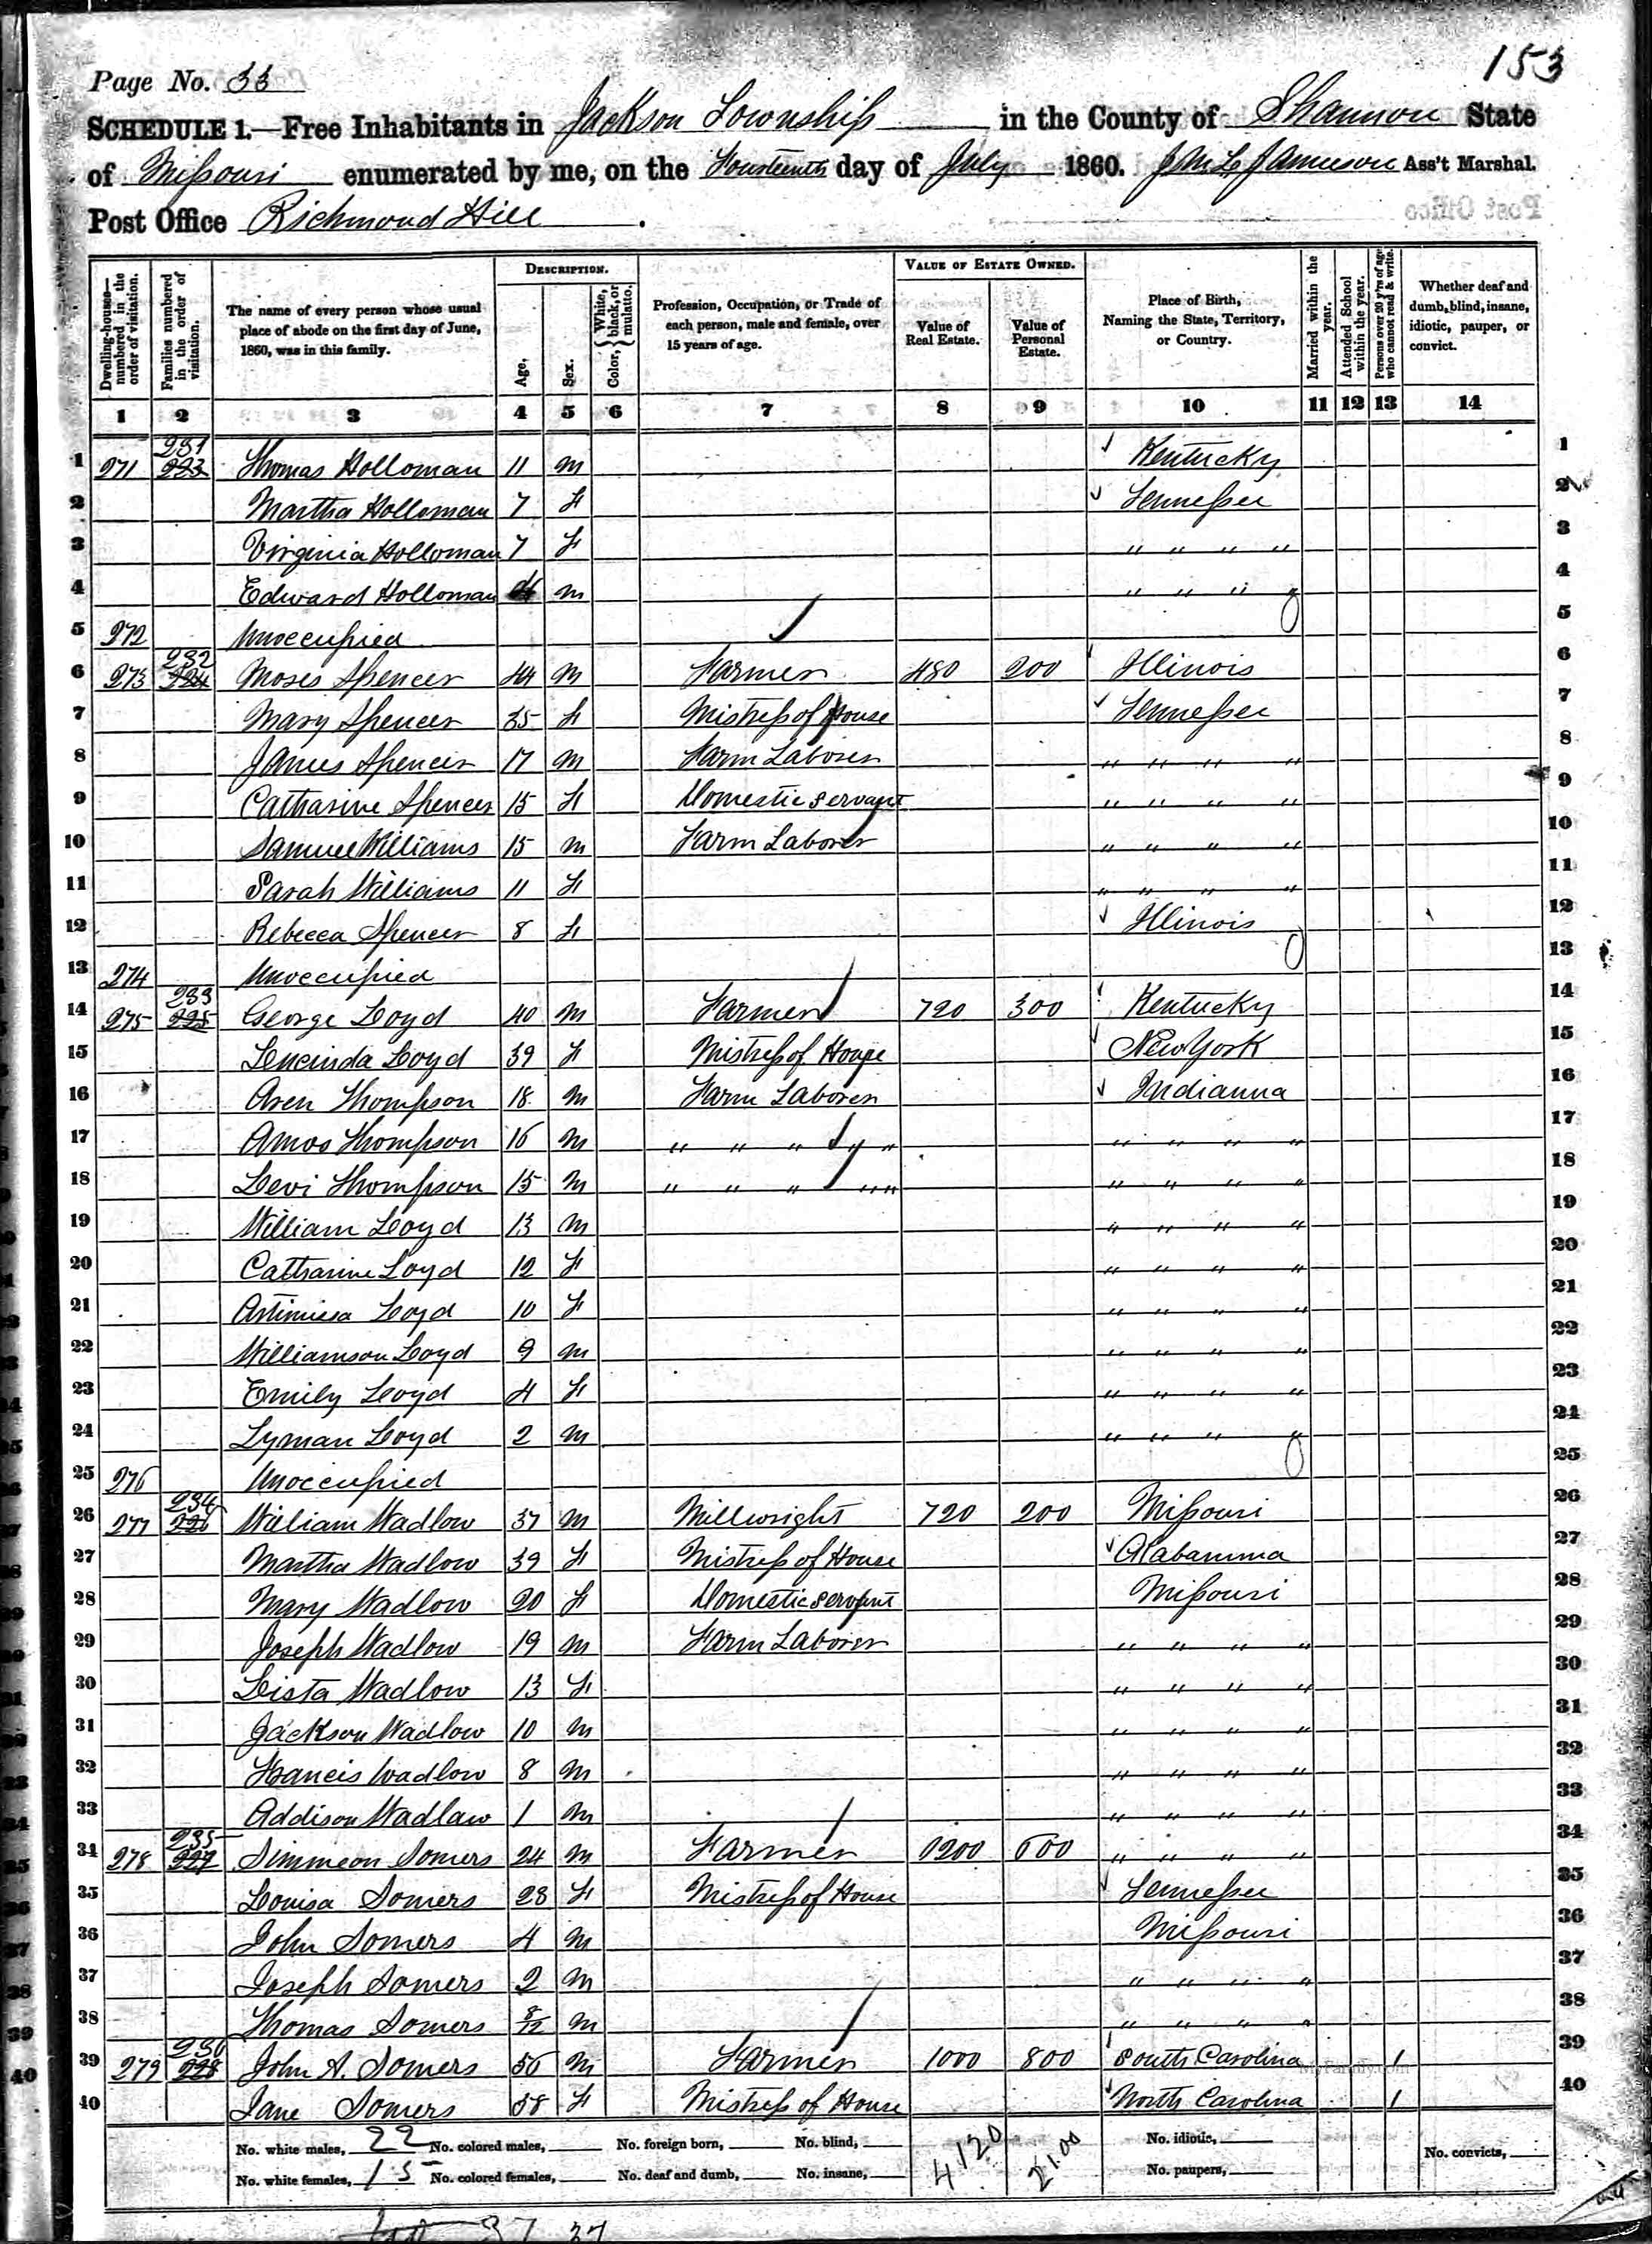 153
Page No. 33
SCHEDULE 1.—Free Inhabitants in Jackson Township in the County of Shannon State
of Missouri enumerated by me, on the Fourteenth day of July 1860. Ass't Marshal.
Post Office Richmond Hill.
DESCRIPTION. VALUE OF ESTATE OWNED.
Dwelling-houses—numbered in the order of visitation.
Families numbered in the order of visitation.
The name of every person whose usual place of abode on the first day of June, 1860, was in this family.
Age.
Sex.
Color, { White, black, or mulatto.
Profession, Occupation, or Trade of each person, male and female, over 15 years of age.
Value of Real Estate.
Value of Personal Estate.
Place of Birth, Naming the State, Territory, or Country.
Married within the year.
Attended School within the year.
Persons over 20 y'rs of age who cannot read & write.
Whether deaf and dumb, blind, insane, idiotic, pauper, or convict.
1 2 3 4 5 6 7 8 9 10 11 12 13 14
1 271 231 223 Thomas Holloman 11 m Kentucky 1
2 Martha Holloman 7 f Tennessee 2
3 Virginia Holloman 7 f " " " " 3
4 Edward Holloman m " " " " 4
5 272 Unoccupied 5
6 273 232 224 Moses Spencer 44 m Farmer 480 200 Illinois 6
7 Mary Spencer 35 f Mistress of House Tennessee 7
8 James Spencer 17 m Farm Laborer " " " " 8
9 Catharine Spencer 15 f Domestic servant " " " " 9
10 Samuel Williams 15 m Farm Laborer " " " " 10
11 Sarah Williams 11 f " " " " 11
12 Rebecca Spencer 8 f Illinois 12
13 274 Unoccupied 13
14 275 233 225 George Loyd 40 m Farmer 720 300 Kentucky 14
15 Lucinda Loyd 39 f Mistress of House New York 15
16 Aren Thompson 18 m Farm Laborer Indianna 16
17 Amos Thompson 16 m " " " " " " " " " 17
18 Levi Thompson 15 m " " " " " " " " " 18
19 William Loyd 13 m " " " " 19
20 Catharine Loyd 12 f " " " " 20
21 Artimissa Loyd 10 f " " " " 21
22 Williamson Loyd 9 m " " " " 22
23 Emily Loyd 4 f " " " " 23
24 Lyman Loyd 2 m " " " " 24
25 276 Unoccupied 25
26 277 234 226 William Wadlow 37 m Millwright 720 200 Missouri 26
27 Martha Wadlow 39 f Mistress of House Alabamma 27
28 Mary Wadlow 20 f Domestic servant Missouri 28
29 Joseph Wadlow 19 m Farm Laborer " " " " 29
30 Lista Wadlow 13 f " " " " 30
31 Jackson Wadlow 10 m " " " " 31
32 Francis Wadlow 8 m " " " " 32
33 Addison Wadlaw 1 m " " " " 33
34 278 235 227 Simmeon Somers 24 m Farmer 1200 600 " " " " 34
35 Louisa Somers 28 f Mistress of House Tennessee 35
36 John Somers 4 m Missouri 36
37 Joseph Somers 2 m " " " " 37
38 Thomas Somers 8/12 m " " " " 38
39 279 236 228 John A. Somers 56 m Farmer 1000 800 South Carolina 1 39
40 Jane Somers 58 f Mistress of House North Carolina 1 40
No. white males, 22 No. colored males, No. foreign born, No. blind, 4120 2100 No. idiotic,
No. white females, 15 No. colored females, No. deaf and dumb, No. insane, No. paupers, No. convicts,
37 37